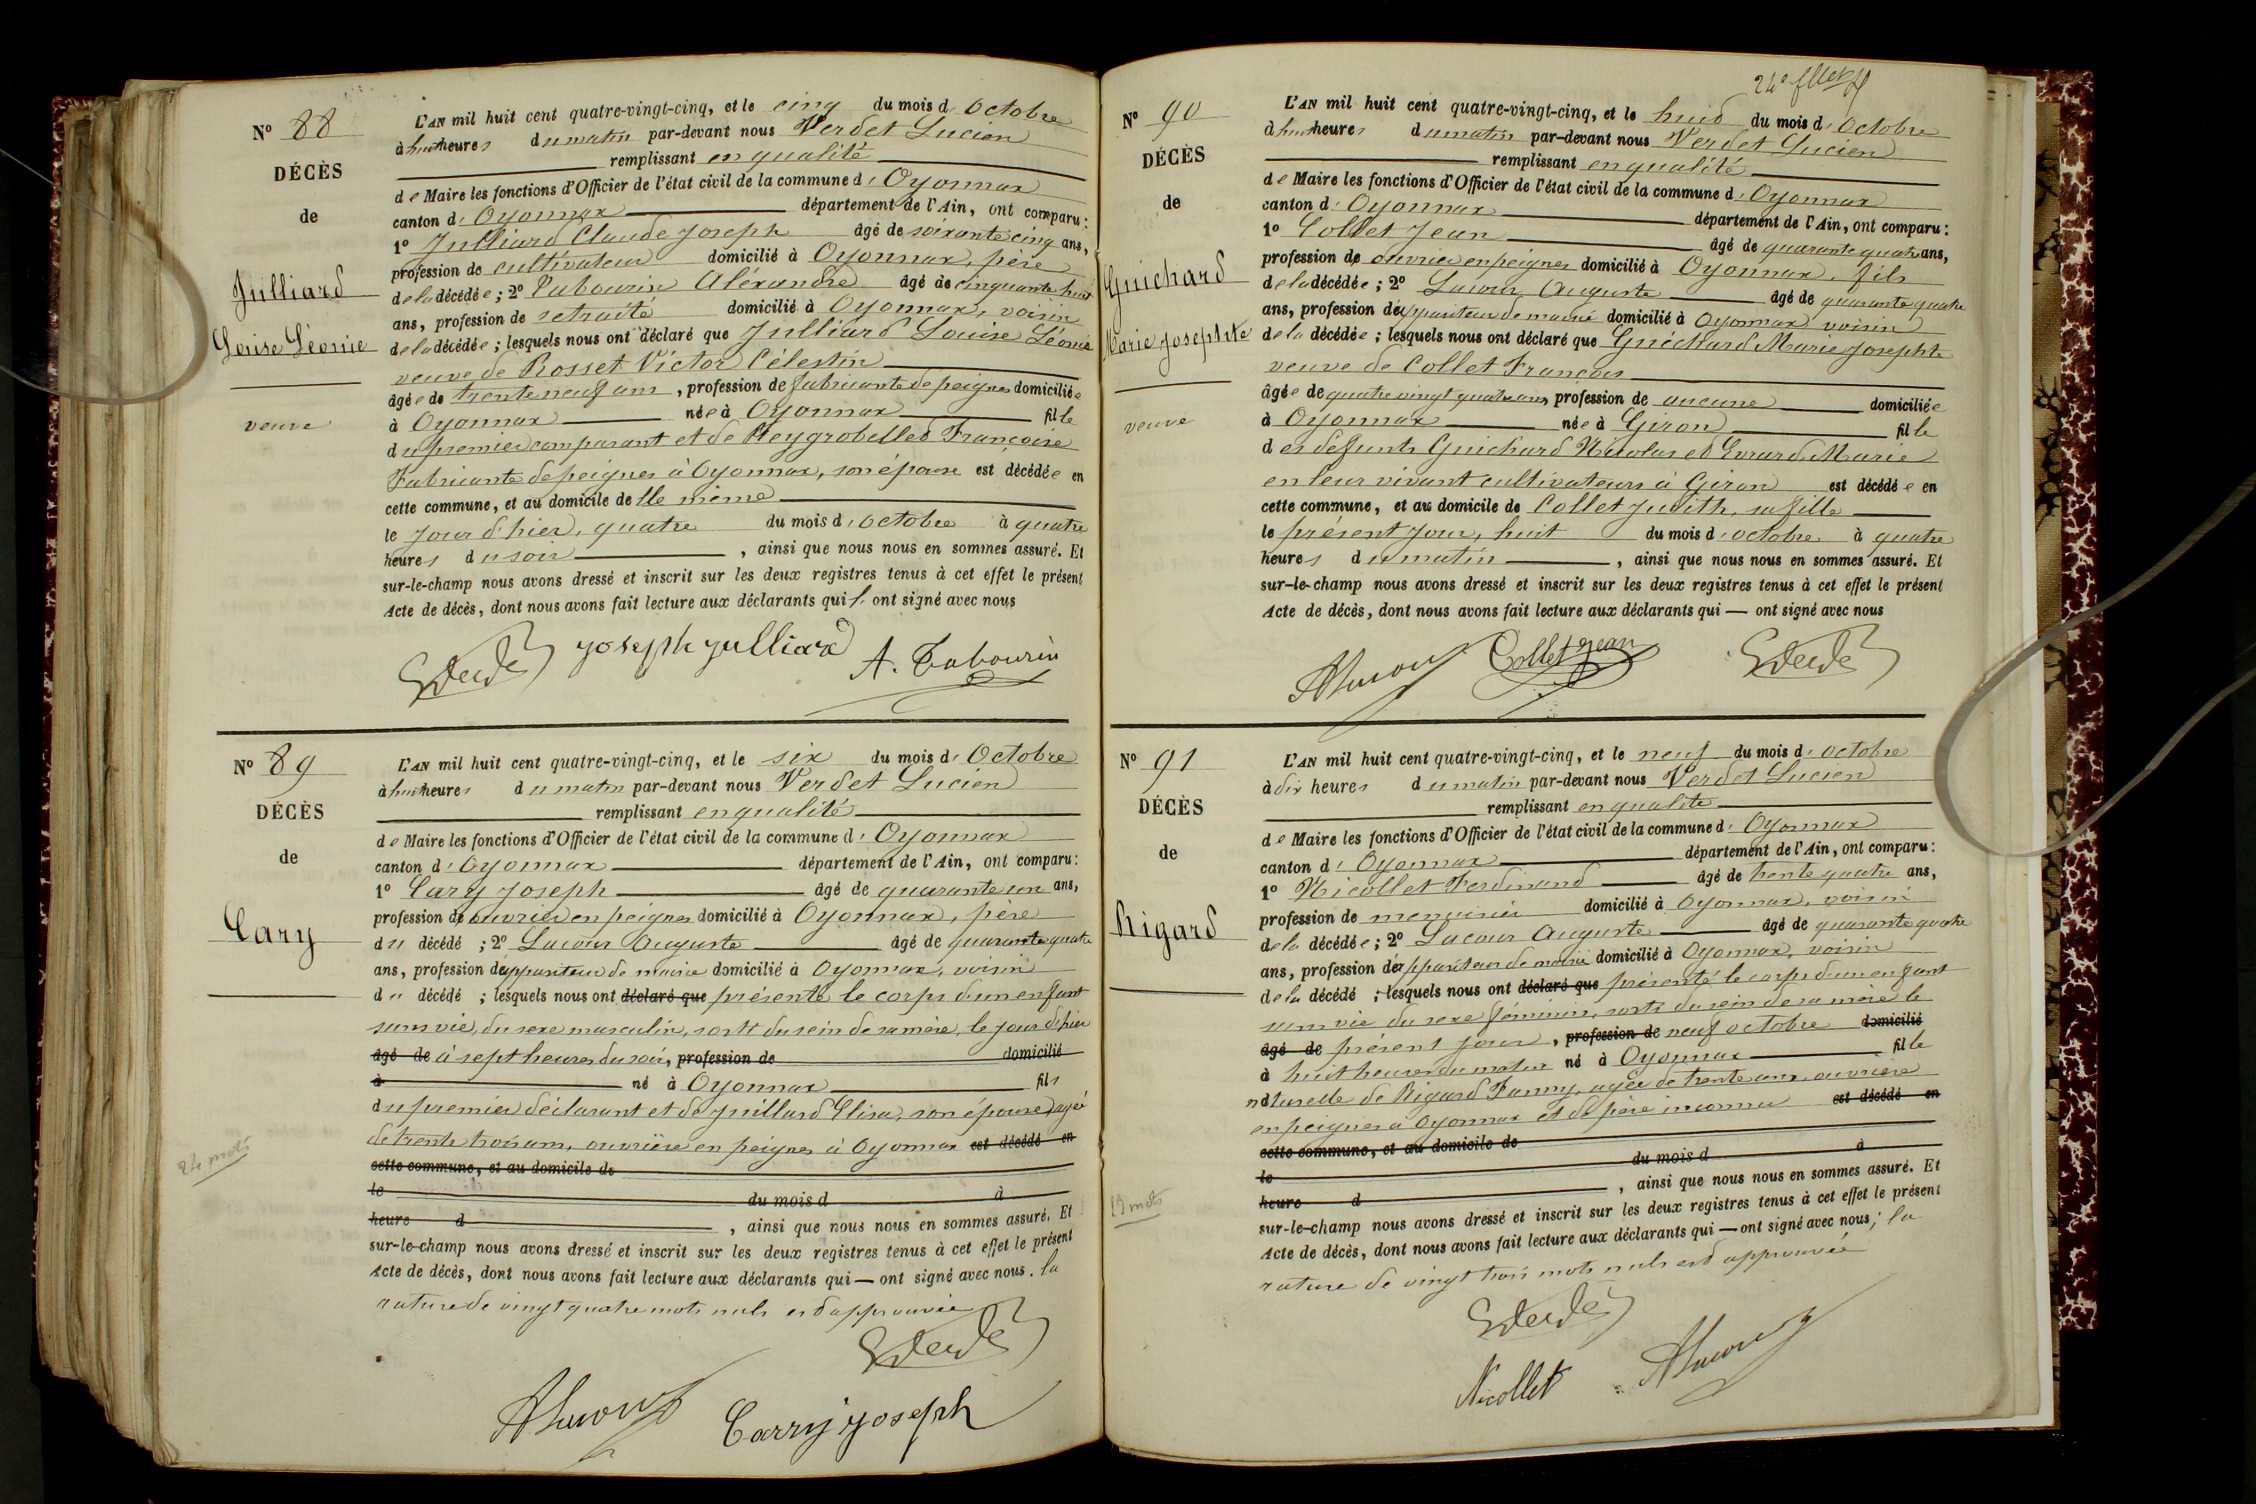 Nº 88
DÉCÈS
de
Julliard
Louise Léonie
veuve
L'AN mil huit cent quatre-vingt-cinq, et le cinq du mois d'Octobre
à huit heures du matin par-devant nous Verdet Lucien
remplissant en qualité
de Maire les fonctions d'Officier de l'état civil de la commune d'Oyonnax
canton d'Oyonnax département de l'Ain, ont comparu:
1º Julliard Claude Joseph âgé de soixante cinq ans,
profession de cultivateur domicilié à Oyonnax, père
de la décédée; 2º Tabourin Aléxandre âgé de cinquante huit
ans, profession de retraité domicilié à Oyonnax, voisin
de la décédée; lesquels nous ont déclaré que Julliard Louise Léonie
veuve de Rosset Victor Célestin
âgée de trente neuf ans, profession de fabricante de peignes domiciliée
à Oyonnax née à Oyonnax fille
du premier comparant et de Françoise
Fabricante de peignes à Oyonnax, son épouse est décédée en
cette commune, et au domicile de lle même
le jour d'hier, quatre du mois d'octobre à quatre
heures du soir, ainsi que nous nous en sommes assuré. Et
sur-le-champ nous avons dressé et inscrit sur les deux registres tenus à cet effet le présent
Acte de décès, dont nous avons fait lecture aux déclarants qui l'ont signé avec nous
Joseph Julliard A. Tabourin
Nº 89
DÉCÈS
de
Cary
24 mots
L'AN mil huit cent quatre-vingt-cinq, et le six du mois d'Octobre
à huit heures du matin par-devant nous Verdet Lucien
remplissant en qualité
de Maire les fonctions d'Officier de l'état civil de la commune d'Oyonnax
canton d'Oyonnax département de l'Ain, ont comparu:
1º Cary Joseph âgé de quarante un ans,
profession de ouvrier en peignes domicilié à Oyonnax, père
du décédé; 2º Lacour Auguste âgé de quarante quatre
ans, profession d'appariteur de mairie domicilié à Oyonnax, voisin
du décédé; lesquels nous ont déclaré que présenté le corps d'un enfant
sans vie, du sexe masculin, sorti du sein de sa mère, le jour d'hier
âgé de à sept heures du soir, profession de domicilié
à né à Oyonnax fils
du premier déclarant et de Juillard Elisa, son épouse, agée
de trente trois ans, ouvrière en peignes à Oyonnax est décédé en
cette commune, et au domicile de
le du mois d à
heure d, ainsi que nous nous en sommes assuré. Et
sur-le-champ nous avons dressé et inscrit sur les deux registres tenus à cet effet le présent
Acte de décès, dont nous avons fait lecture aux déclarants qui — ont signé avec nous. la
rature de vingt quatre mots nuls est approuvée
ALacour Carry Joseph
24e fllet
Nº 90
DÉCÈS
de
Guichard
Marie Josephte
veuve
L'AN mil huit cent quatre-vingt-cinq, et le huit du mois d'Octobre
à huit heures du matin par-devant nous Verdet Lucien
remplissant en qualité
de Maire les fonctions d'Officier de l'état civil de la commune d'Oyonnax
canton d'Oyonnax département de l'Ain, ont comparu:
1º Collet Jean âgé de quarante quatre ans,
profession de ouvrier en peignes domicilié à Oyonnax, fils
de la décédée; 2º Lacour Auguste âgé de quarante quatre
ans, profession d'appariteur de mairie domicilié à Oyonnax voisin
de la décédée; lesquels nous ont déclaré que Guichard Marie Josephte
veuve de Collet François
âgée de quatre vingt quatre ans, profession de aucune domiciliée
à Oyonnax née à Giron fille
des défunts Guichard Nicolas et Evrard Marie
en leur vivant cultivateurs à Giron est décédée en
cette commune, et au domicile de Collet Judith, sa fille
le présent jour, huit du mois d'octobre à quatre
heures du matin, ainsi que nous nous en sommes assuré. Et
sur-le-champ nous avons dressé et inscrit sur les deux registres tenus à cet effet le présent
Acte de décès, dont nous avons fait lecture aux déclarants qui — ont signé avec nous
ALacour Collet Jean
Nº 91
DÉCÈS
de
Rigard
23 mots
L'AN mil huit cent quatre-vingt-cinq, et le neuf du mois d'octobre
à dix heures du matin par-devant nous Verdet Lucien
remplissant en qualité
de Maire les fonctions d'Officier de l'état civil de la commune d'Oyonnax
canton d'Oyonnax département de l'Ain, ont comparu:
1º Nicollet Ferdinand âgé de trente quatre ans,
profession de menuisier domicilié à Oyonnax, voisin
de la décédée; 2º Lacour Auguste âgé de quarante quatre
ans, profession d'appariteur de mairie domicilié à Oyonnax, voisin
de la décédé; lesquels nous ont déclaré que présenté le corps d'un enfant
sans vie du sexe féminin, sorti du sein de sa mère le
âgé de présent jour, profession de neuf octobre domicilié
à huit heures du matin né à Oyonnax fille
naturelle de Rigard Fanny, agée de trente ans, ouvrière
en peignes à Oyonnax et de père inconnu est décédé en
cette commune, et au domicile de
le du mois d à
heure d, ainsi que nous nous en sommes assuré. Et
sur-le-champ nous avons dressé et inscrit sur les deux registres tenus à cet effet le présent
Acte de décès, dont nous avons fait lecture aux déclarants qui — ont signé avec nous; la
rature de vingt trois mots nuls est approuvée
Nicollet ALacour